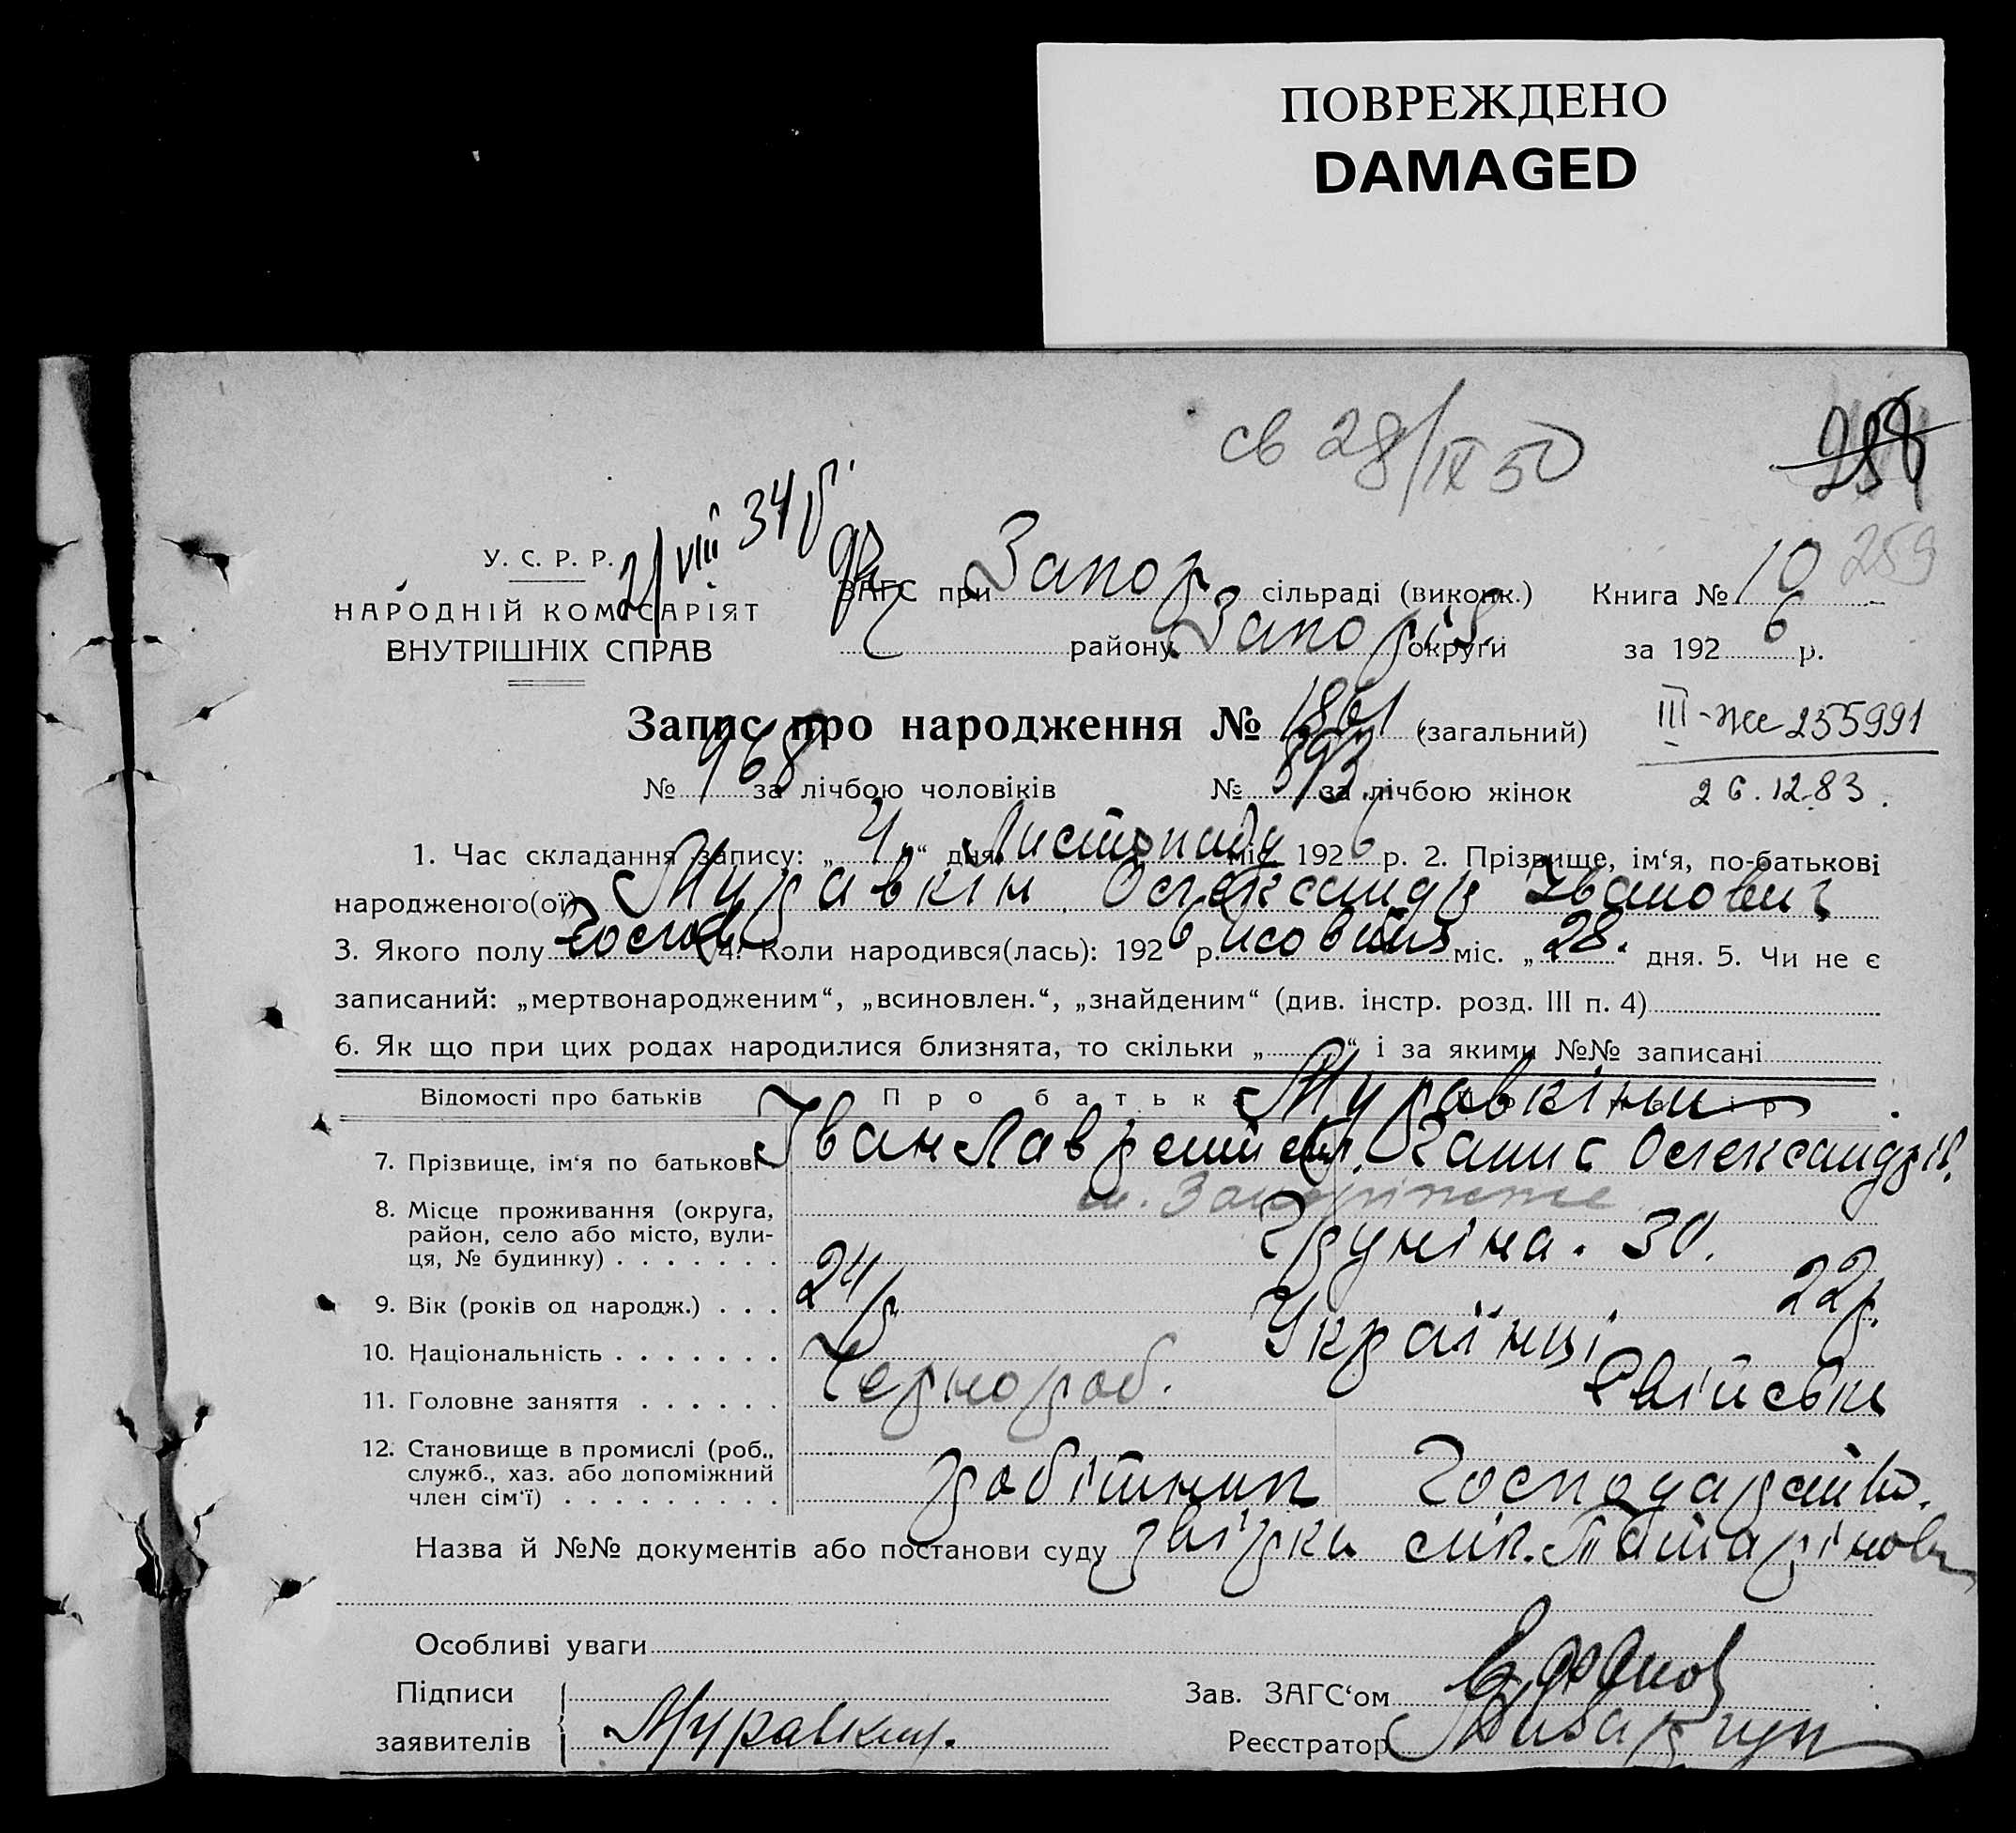 ПОВРЕЖДЕНО
DAMAGED
св 28/IX 50
258
259
21/VIII 34 р.
У. С. Р. Р.
НАРОДНІЙ КОМІСАРІЯТ
ВНУТРІШНІХ СПРАВ
ЗАГС при Запор сільраді (виконк.) Книга № 10
району Запоріз. округи за 192 6 р.
Запис про народження № 1861 (загальний)
III-же 255991
№ 968 за лічбою чоловіків № 893 за лічбою жінок
26.12.83.
1. Час складання запису: „ 4 “ дня Листопаду міс. 192 6 р. 2. Прізвище, ім‘я, по-батькові
народженого(ої) Муравкін Олександр Іванович
3. Якого полу 4. Коли народився(лась): 192 6 р. жовтня міс. „ 28. “ дня. 5. Чи не є
записаний: „мертвонародженим“, „всиновлен.“, „знайденим“ (див. інстр. розд. III п. 4)
6. Як що при цих родах народилися близнята, то скільки „ “ і за якими №№ записані
Відомості про батьків Про батька Муравкіни
7. Прізвище, ім‘я по батькові Іван Олександрів.
8. Місце проживання (округа, район, село або місто, вулиця, № будинку) м. Запоріжже
30.
9. Вік (років од народж.) 24 р 22 р.
10. Національність Українці
11. Головне заняття Чорнороб. Свійськи
12. Становище в промислі (роб., служб., хаз. або допоміжний член сім‘ї) робітник Господарство.
Назва й №№ документів або постанови суду
Особливі уваги
Підписи Зав. ЗАГС‘ом
заявителів Муравкин. Реєстратор